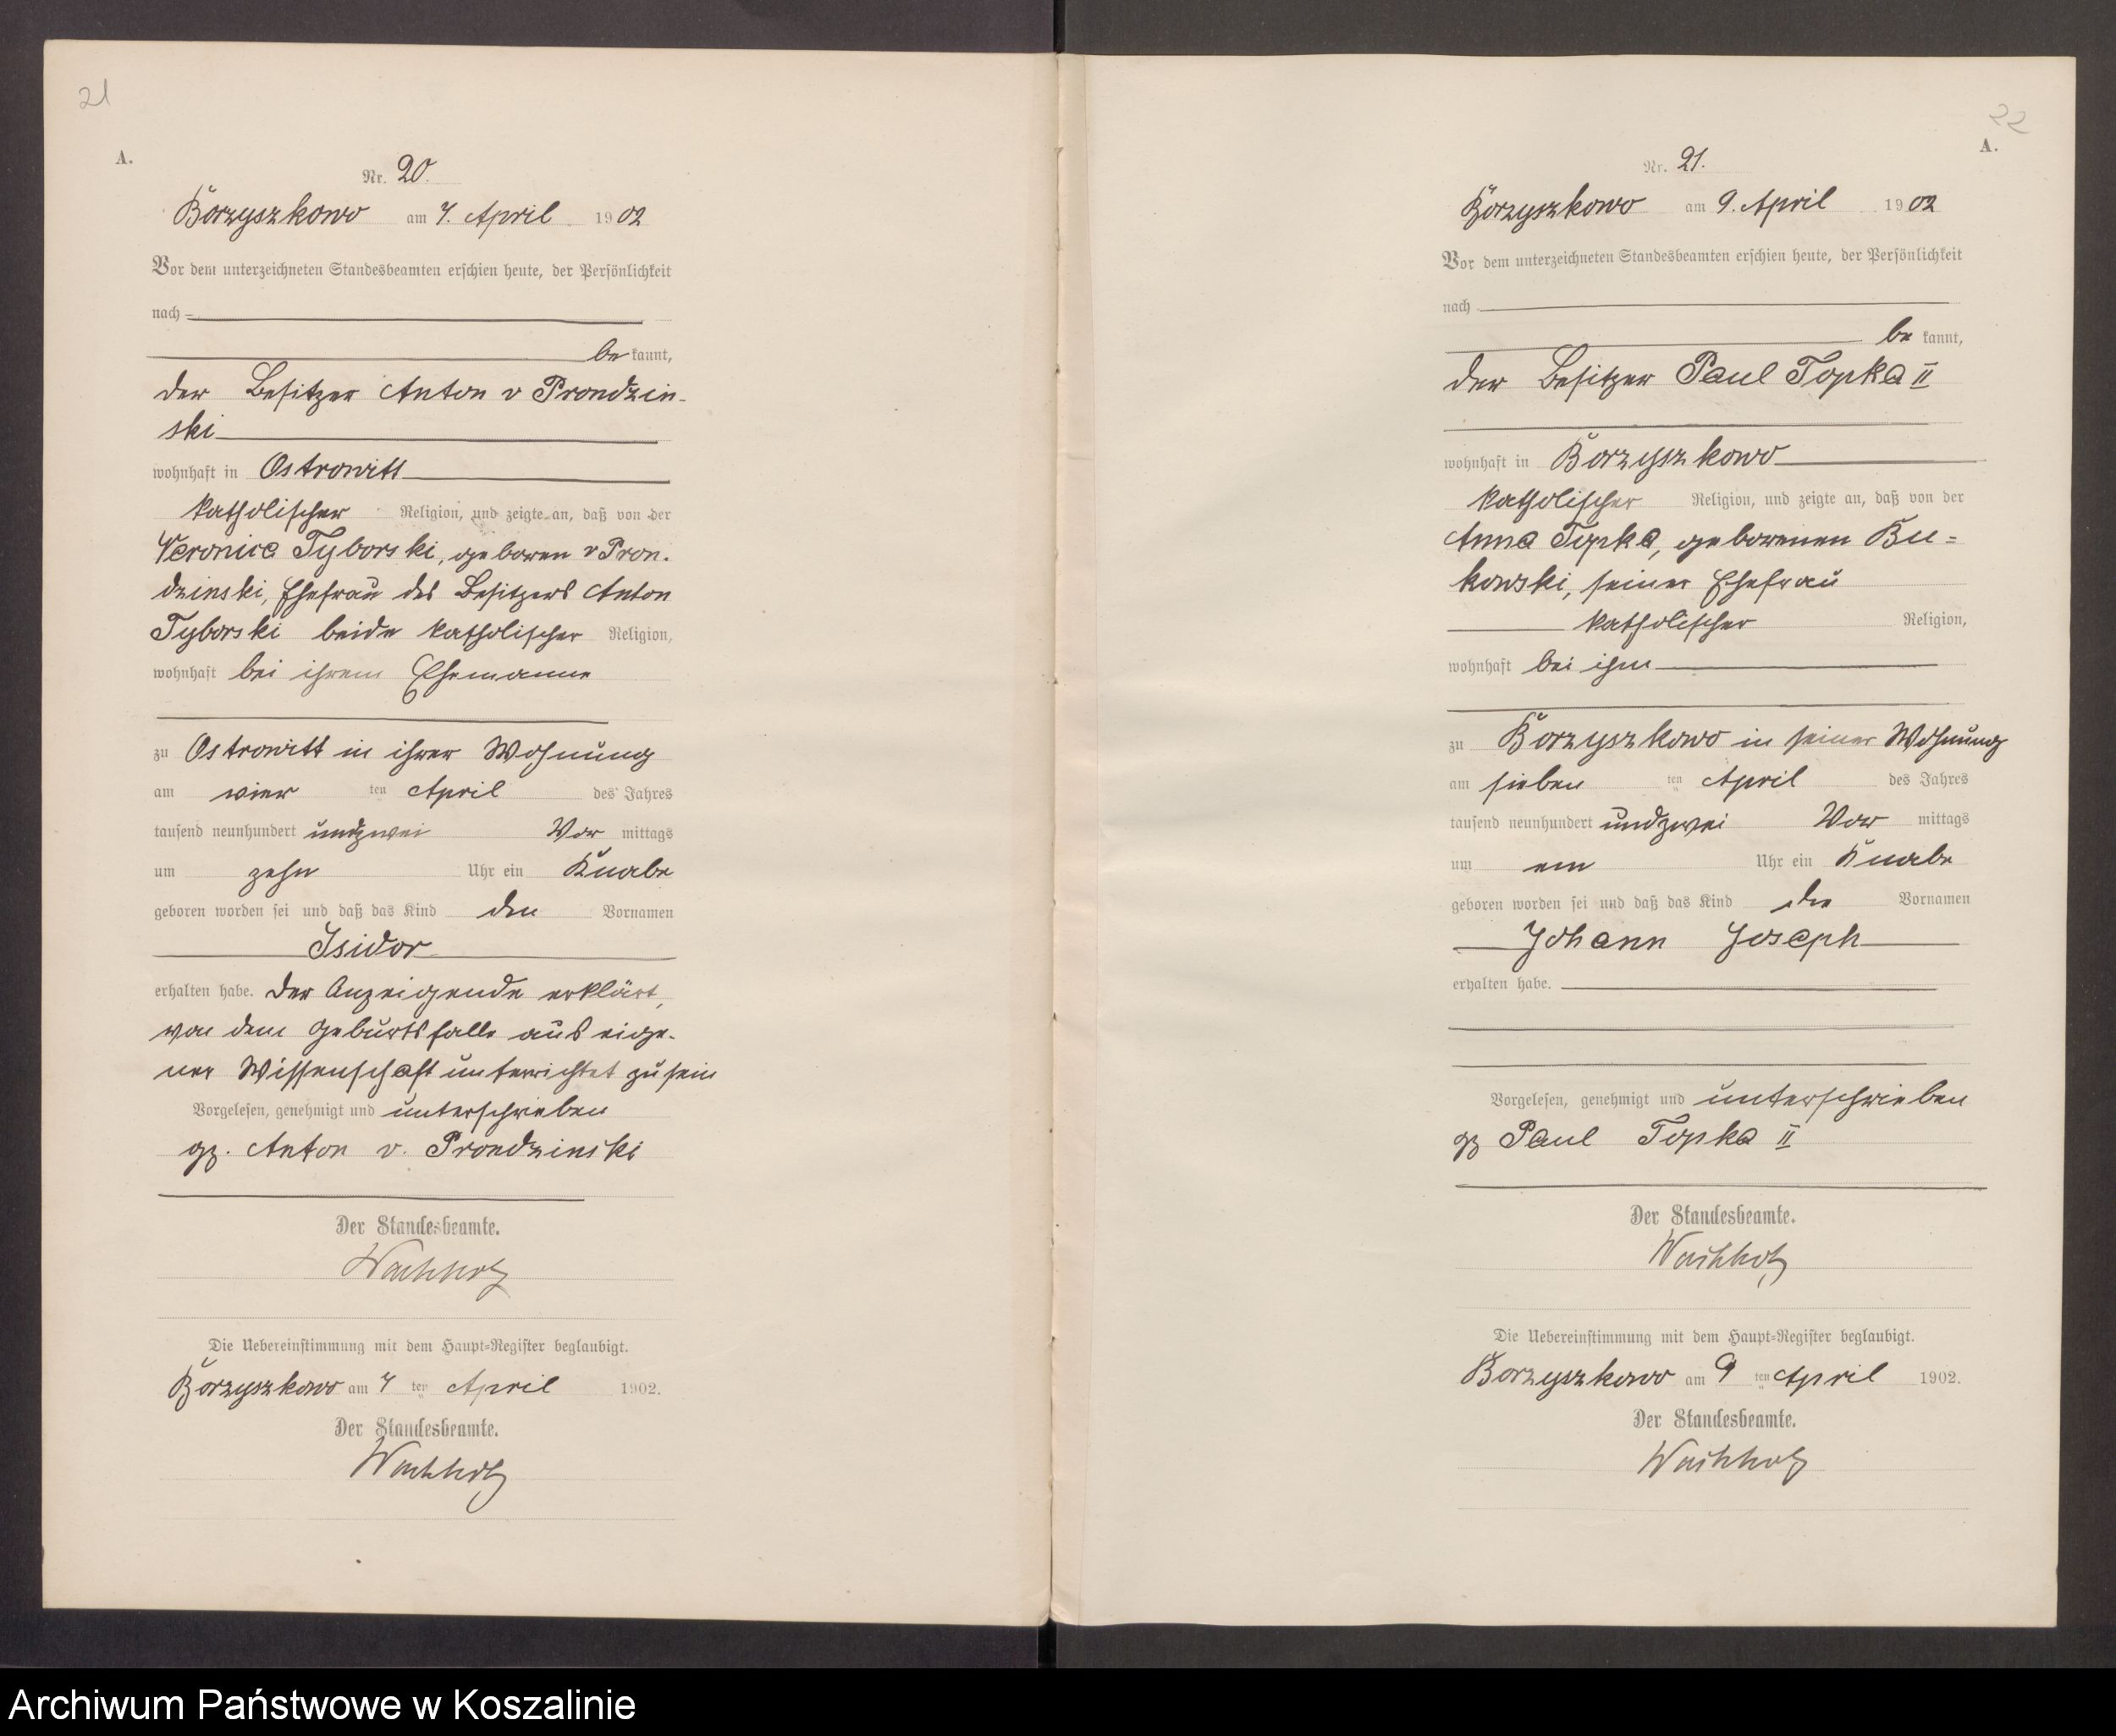 21
A.
Nr. 20.
Borzyszkowo am 7. April 1902
Vor dem unterzeichneten Standesbeamten erschien heute, der Persönlichkeit
nach
be kannt,
der Besitzer Anton v Prondzin-
ski
wohnhaft in Ostrowitt
katholischer Religion, und zeigte an, daß von der
Veronica Tyborski, geboren v Pron-
dzinski, Ehefrau des Besitzers Anton
Tyborski beide katholischer Religion,
wohnhaft bei ihrem Ehemanne
zu Ostrowitt in ihrer Wohnung
am vier ten April des Jahres
tausend neunhundert undzwei Vor mittags
um zehn Uhr ein Knabe
geboren worden sei und daß das Kind den Vornamen
Isidor
erhalten habe. Der Anzeigende erklärt,
von dem Geburtsfalle aus eige-
ner Wissenschaft unterrichtet zu sein
Vorgelesen, genehmigt und unterschrieben
gz. Anton v. Prondzinski
Der Standesbeamte.
Wachholz
Die Uebereinstimmung mit dem Haupt-Register beglaubigt.
Borzyszkowo am 7 ten April 1902.
Der Standesbeamte.
Wachholz
22
A.
Nr. 21.
Borzyszkowo am 9. April 1902
Vor dem unterzeichneten Standesbeamten erschien heute, der Persönlichkeit
nach
be kannt,
der Besitzer Paul Topka II
wohnhaft in Borzyszkowo
katholischer Religion, und zeigte an, daß von der
Anna Topka, geborenen Bu=
kowski, seiner Ehefrau
katholischer Religion,
wohnhaft bei ihm
zu Borzyszkowo in seiner Wohnung
am sieben ten April des Jahres
tausend neunhundert undzwei Vor mittags
um ein Uhr ein Knabe
geboren worden sei und daß das Kind die Vornamen
Johann Joseph
erhalten habe.
Vorgelesen, genehmigt und unterschrieben
gz Paul Topka II
Der Standesbeamte.
Wachholz
Die Uebereinstimmung mit dem Haupt-Register beglaubigt.
Borzyszkowo am 9 ten April 1902.
Der Standesbeamte.
Wachholz
Archiwum Państwowe w Koszalinie